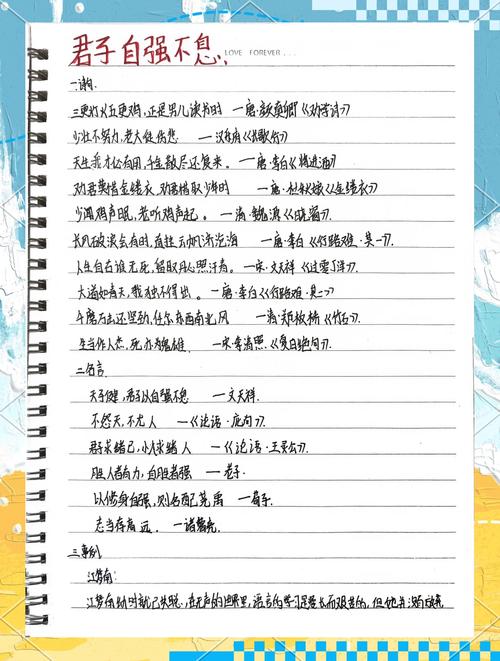 君子自强不息
LOVE FOREVER...
一.诗句
三更灯火五更鸡,正是男儿读书时 —唐·颜真卿《劝学诗》
少壮不努力,老大徒伤悲 —汉乐府《长歌行》
天生我才必有用,千金散尽还复来。 —唐·李白《将进酒》
劝君莫惜金缕衣 劝君惜取少年时 —唐·杜秋娘《金缕衣》
少闻鸡声眠,老听鸡声起。 —清·魏源《晓窗》.
长风破浪会有时,直挂云帆济沧海 —唐·李白《行路难·其一》.
人生自古谁无死,留取丹心照汗青。 —宋·文天祥《过零丁洋》.
大道如青天,我独不得出。 —唐·李白《行路难·其二》
千磨万击还坚劲,任尔东西南北风 —清·郑板桥《竹石》.
生当作人杰,死亦为鬼雄 —宋·李清照.《夏日绝句》.
二.名言
天行健,君子以自强不息 —文天祥.
不怨天,不尤人 —《论语·宪问》.
君子求诸己,小人求诸人 —《论语·卫灵公》.
胜人者有力,自胜者强 —老子.
以修身自强,则名配尧禹 —荀子.
志当存高远. —诸葛亮.
三.事例
江梦南:
江梦南幼时就已失聪,在无声的世界里,语言的学习是漫长而艰苦的,但他并没有放弃